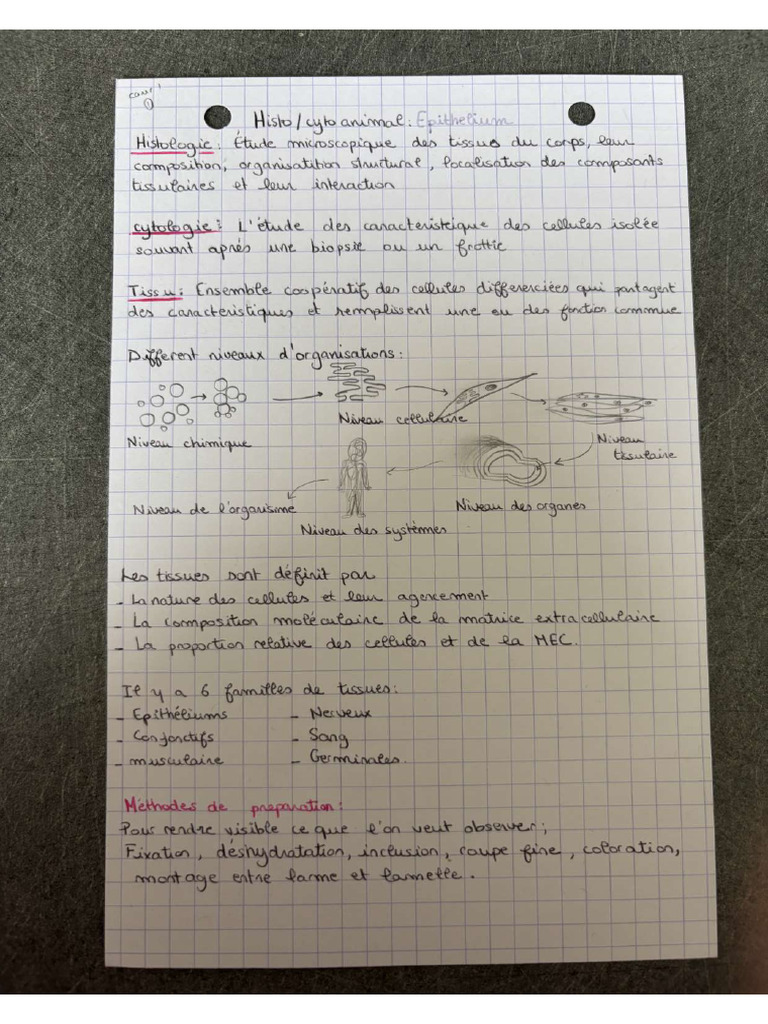 cours 1
Histo/cyto animal: Epithelium
Histologie: Étude microscopique des tissus du corps, leur
composition, organisatition structural, localisation des composants
tissulaires et leur interaction
cytologie: L'étude des caracteristique des cellules isolée
souvant aprés une biopsie ou un frottie
Tissu: Ensemble coopératif des cellules differerciées qui partagent
des caracteristiques et remplissent une ou des fonction commue
Different niveaux d'organisations:
Niveau chimique
Niveau cellulaire
Niveau
tissulaire
Niveau des organes
Niveau des systèmes
Niveau de l'organisme
Les tissues sont définit par
- La nature des cellules et leur agencement
- La composition moléculaire de la matrice extracellulaire
- La proportion relative des cellules et de la MEC.
Il y a 6 familles de tissues:
- Epithéliums - Nerveux
- Conjonctifs - Sang
- musculaire - Germinales.
Méthodes de preparation:
Pour rendre visible ce que l'on veut observer;
Fixation, déshydratation, inclusion, coupe fine, coloration,
montage entre lame et lamelle.